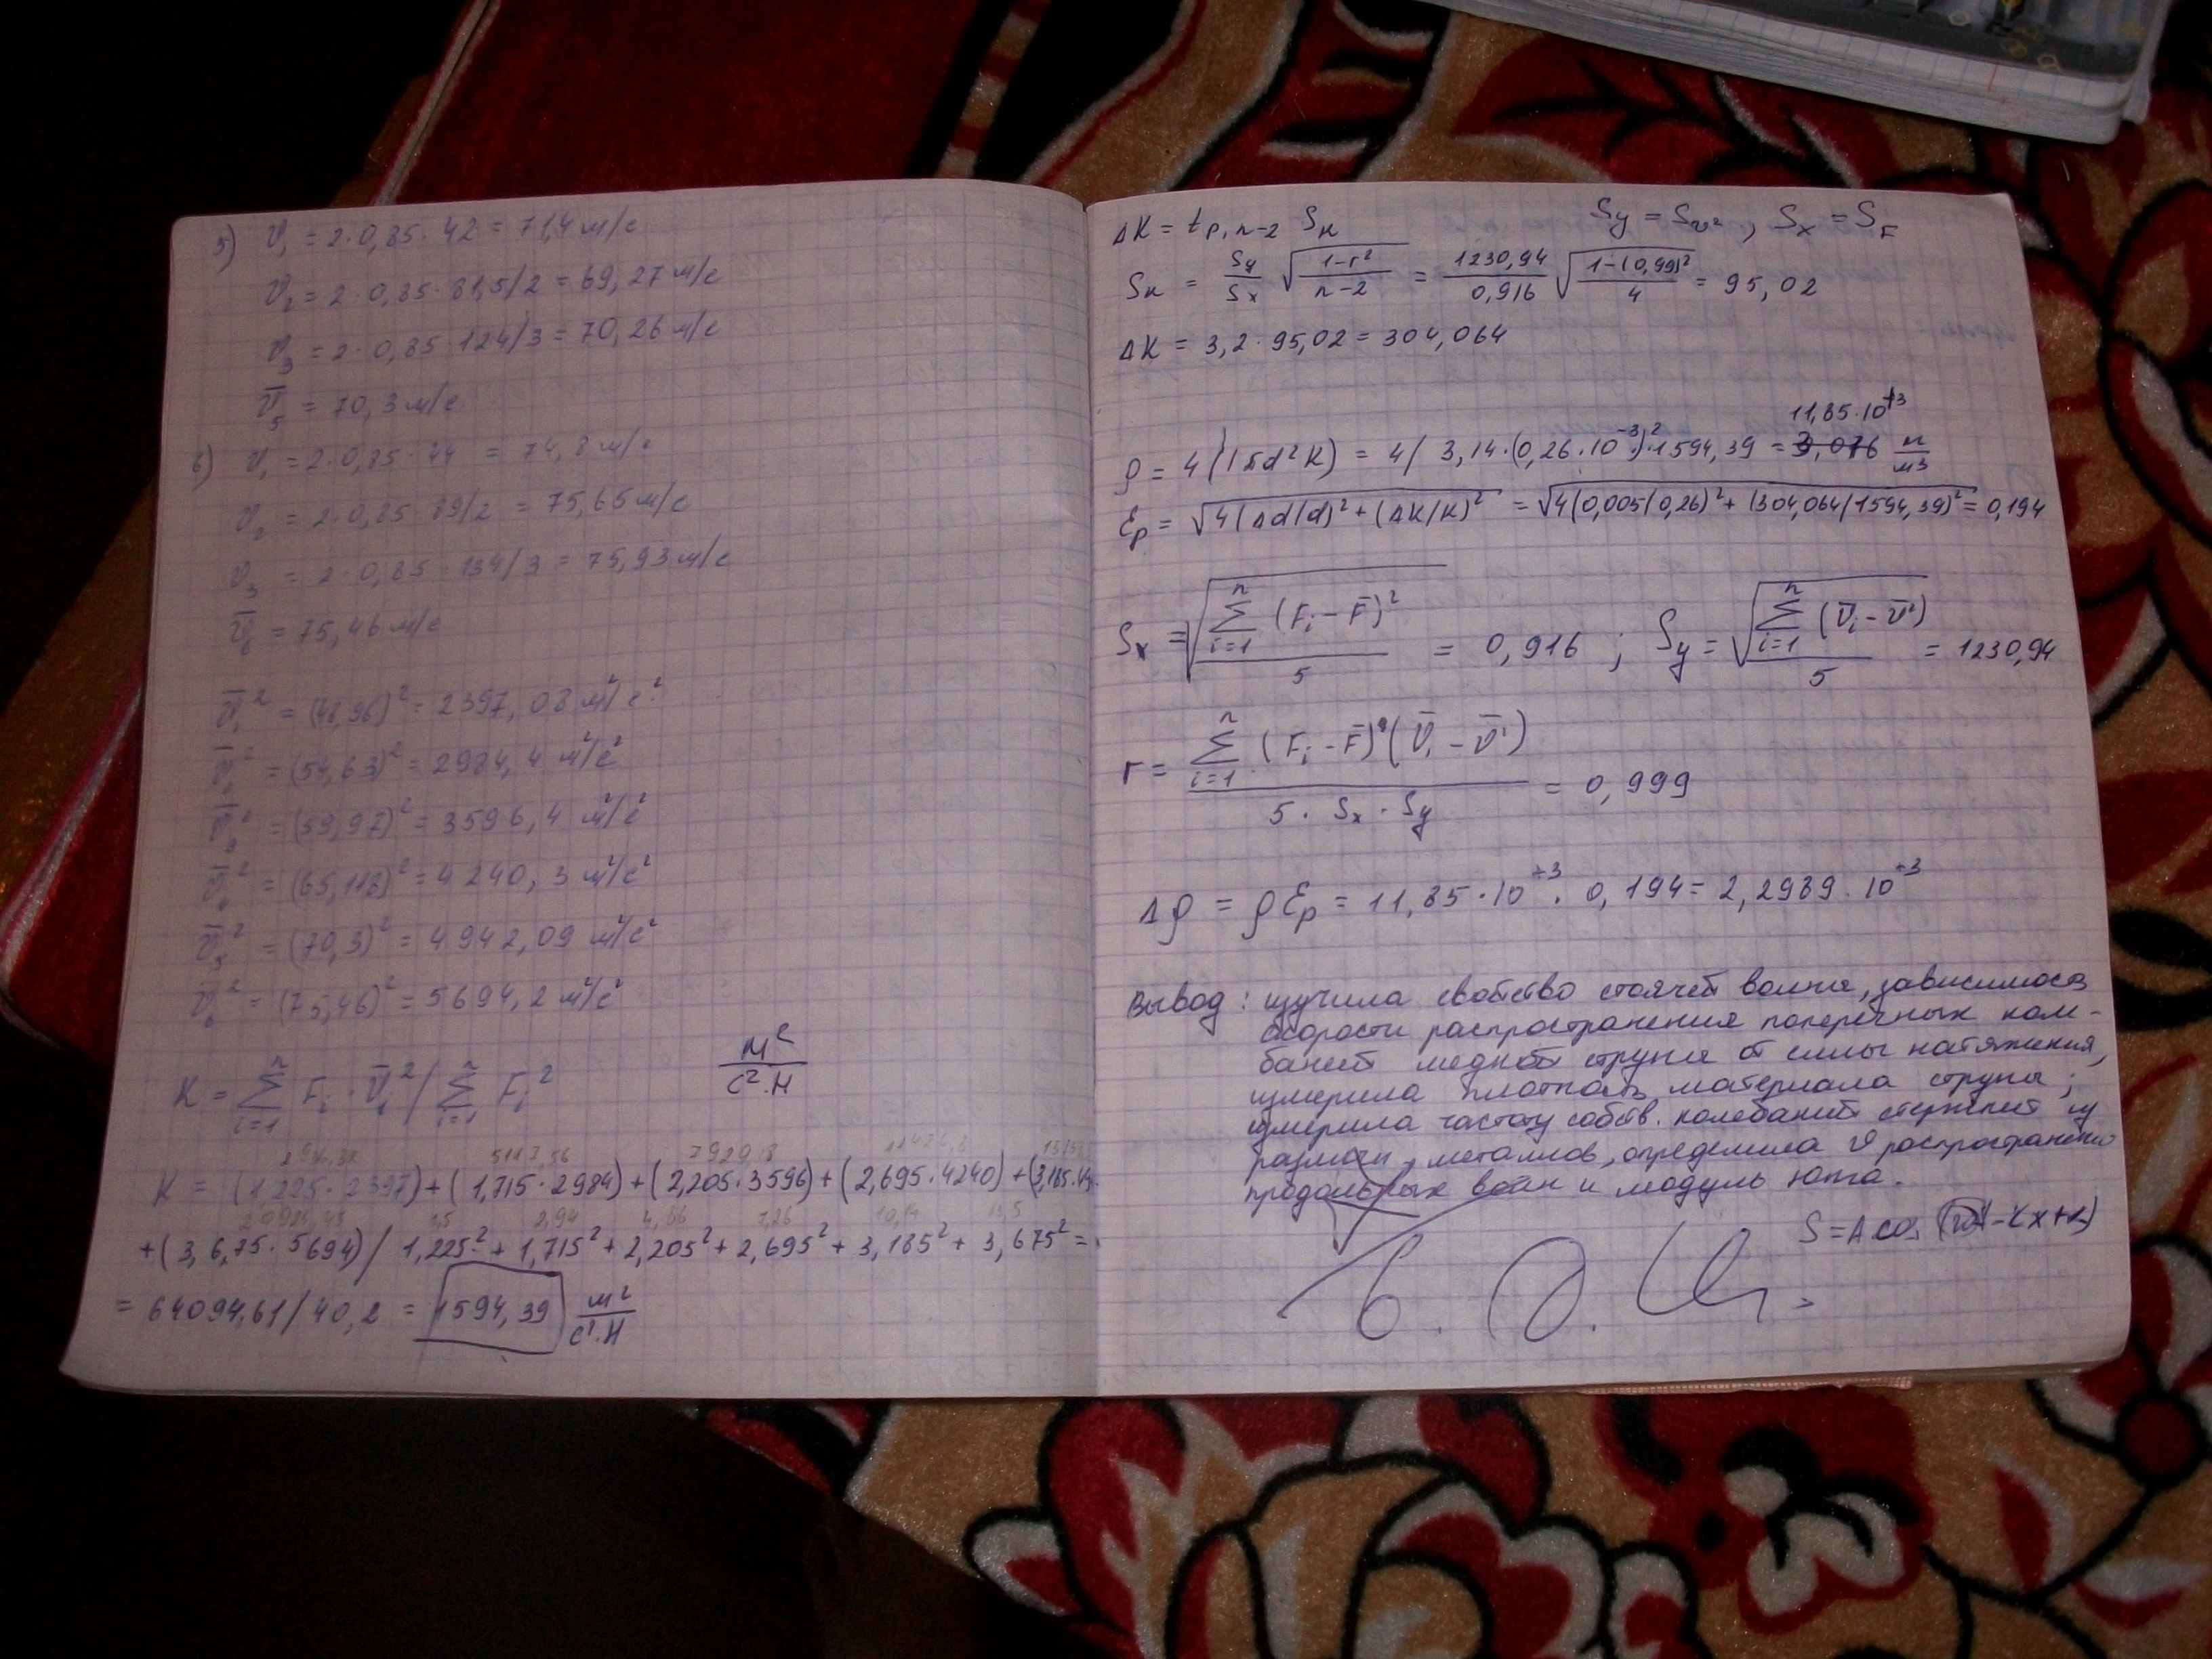 5) V₁ = 2·0,85·42 = 71,4 м/с
V₂ = 2·0,85·81,5/2 = 69,27 м/с
V₃ = 2·0,85·124/3 = 70,26 м/с
V̅₅ = 70,3 м/с
6) V₁ = 2·0,85·44 = 74,8 м/с
V₂ = 2·0,85·89/2 = 75,65 м/с
V₃ = 2·0,85·134/3 = 75,93 м/с
V̅₆ = 75,46 м/с
V̅₁² = (48,96)² = 2397,08 м²/с²
V̅₂² = (54,63)² = 2984,4 м²/с²
V̅₃² = (59,97)² = 3596,4 м²/с²
V̅₄² = (65,118)² = 4240,3 м²/с²
V̅₅² = (70,3)² = 4942,09 м²/с²
V̅₆² = (75,46)² = 5694,2 м²/с²
м²/с²·Н
K = ∑ᵢ₌₁ⁿ Fᵢ·V̅ᵢ² / ∑ᵢ₌₁ⁿ Fᵢ²
K = (1,225·2397)+(1,715·2984)+(2,205·3596)+(2,695·4240)+(3,185·
20924,45 1,5 2,94 4,86 7,26 10,14 13,5
+(3,675·5694)/ 1,225²+1,715²+2,205²+2,695²+3,185²+3,675² =
= 64094,61/40,2 = 1594,39 м²/с²·Н
ΔK = t p,n-2 Sк Sy = Sv², Sx = SF
Sк = Sy/Sx √(1-r²/n-2) = 1230,94/0,916 √(1-(0,99)²/4) = 95,02
ΔK = 3,2·95,02 = 304,064
11,85·10⁺³
ρ = 4/(πd²K) = 4/3,14·(0,26·10⁻³)²·1594,39 = 3,076 кг/м³
Ɛρ = √4(Δd/d)²+(ΔK/K)² = √4(0,005/0,26)²+(304,064/1594,39)² = 0,194
Sx = √∑ᵢ₌₁ⁿ(Fᵢ-F̅)²/5 = 0,916 ; Sy = √∑ᵢ₌₁ⁿ(V̅ᵢ-V̅²)/5 = 1230,94
r = ∑ᵢ₌₁ⁿ(Fᵢ-F̅)(V̅ᵢ-V̅²)/5·Sx·Sy = 0,999
Δρ = ρƐρ = 11,85·10⁺³·0,194 = 2,2989·10⁺³
Вывод: изучила свойство стоячей волны, зависимость
скорости распространения поперечных коле-
баний медной струны от силы натяжения,
измерила плотность материала струны;
измерила частоту собств. колебаний стержней из
разных металлов, определила υ распространения
продольных волн и модуль Юнга.
S = A cos